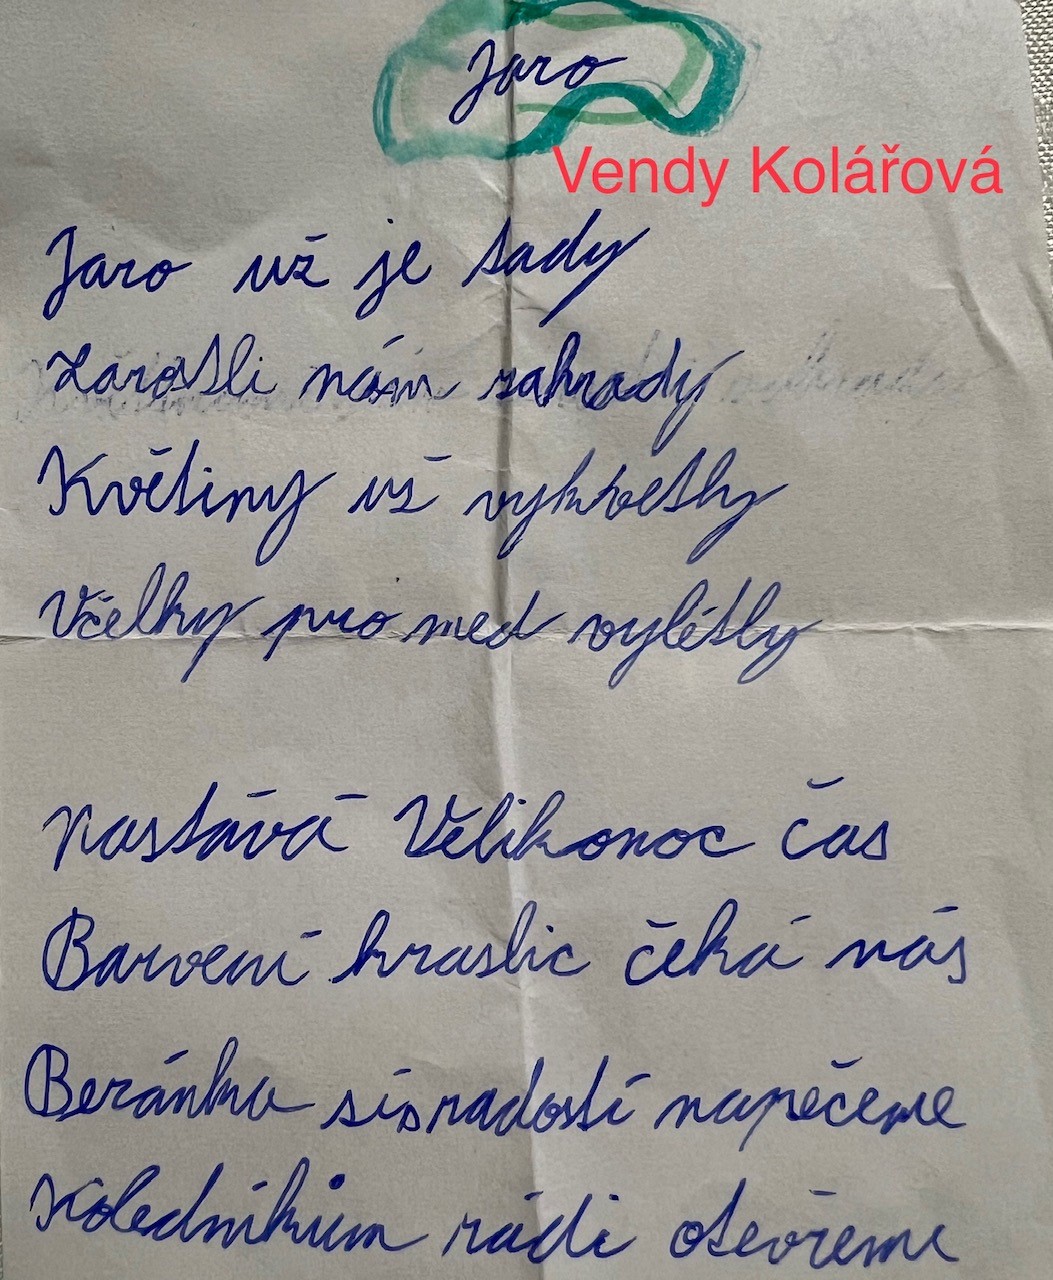 Jaro
Vendy Kolářová
Jaro už je tady
Zarostli nám zahrady
Květiny už vykvetly
Včelky pro med vylétly
Nastává Velikonoc čas
Barvení kraslic čeká nás
Beránka si s radostí napečeme
Koledníkům rádi otevřeme